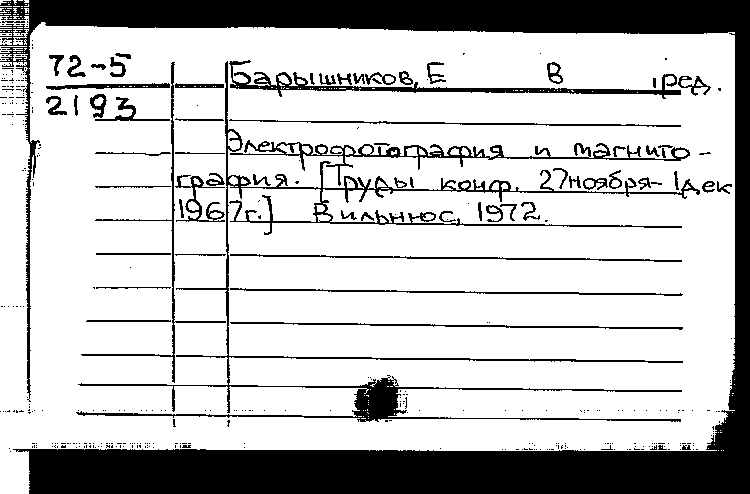 72-5
2193
Барышников, Е В ред.
Электрофотография и магнито-
графия. [Труды конф. 27 ноября - 1 дек
1967 г.] Вильнюс, 1972.